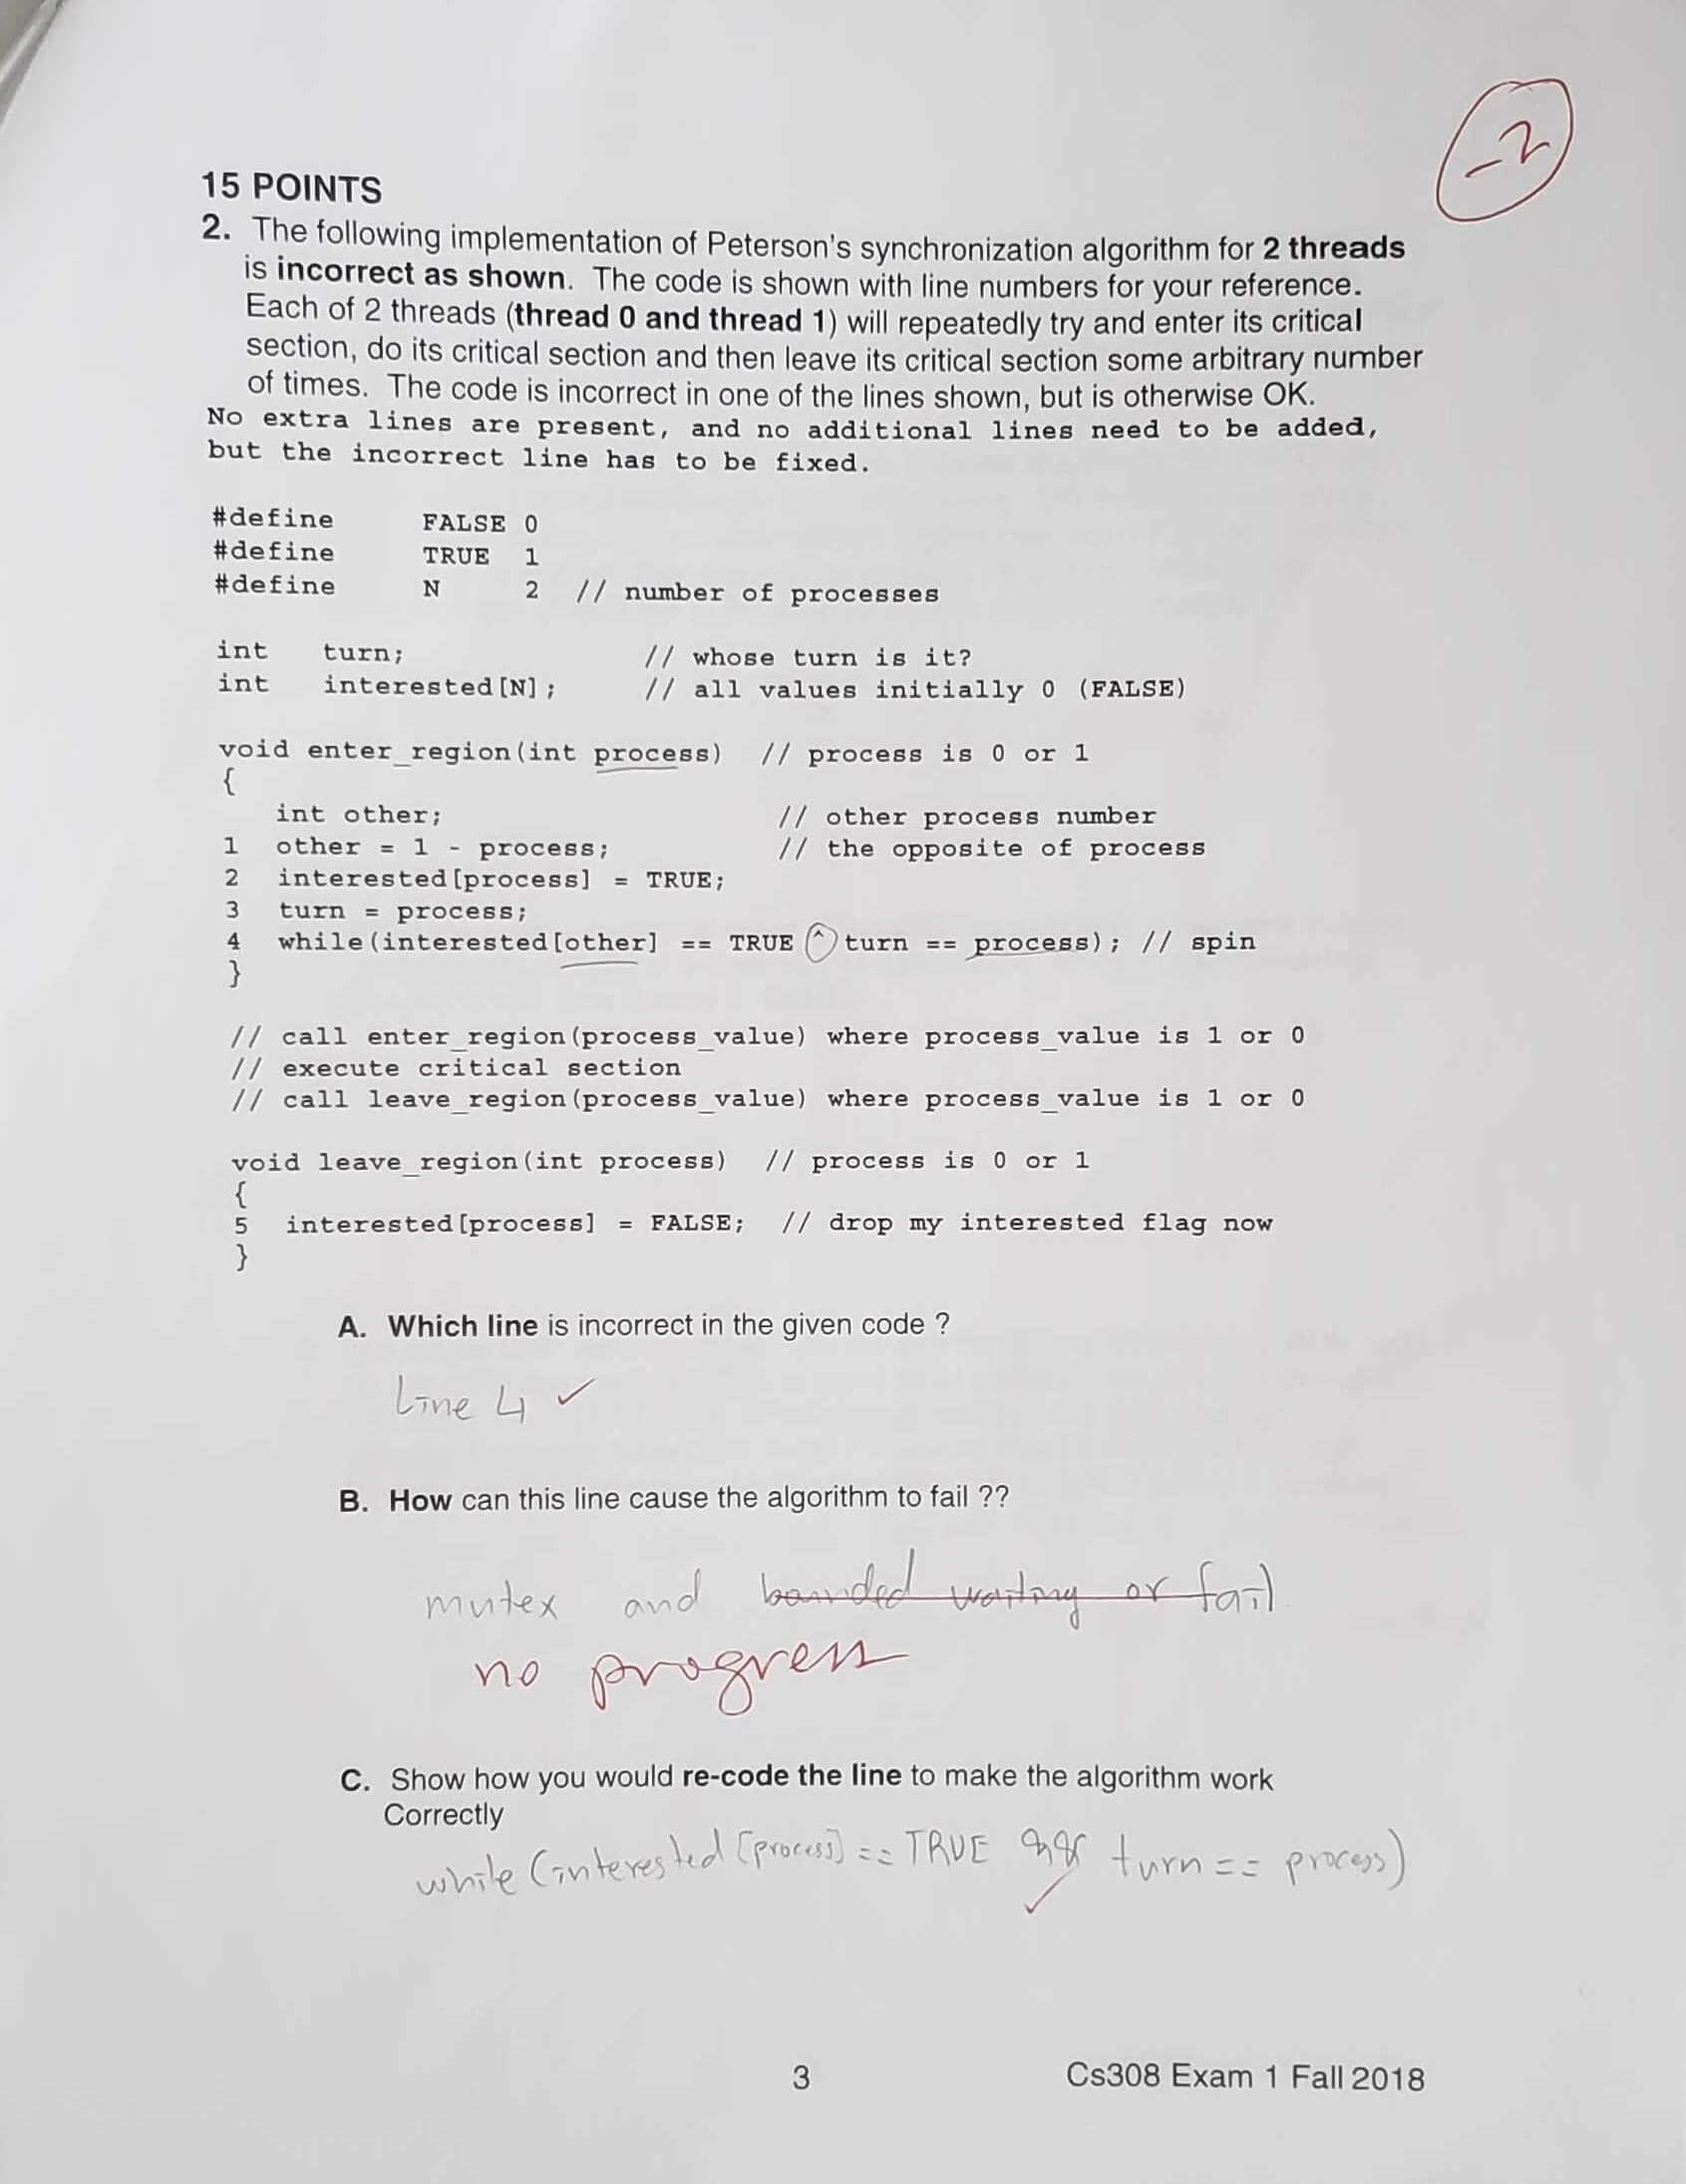 -2
15 POINTS
2. The following implementation of Peterson's synchronization algorithm for 2 threads
is incorrect as shown. The code is shown with line numbers for your reference.
Each of 2 threads (thread 0 and thread 1) will repeatedly try and enter its critical
section, do its critical section and then leave its critical section some arbitrary number
of times. The code is incorrect in one of the lines shown, but is otherwise OK.
No extra lines are present, and no additional lines need to be added,
but the incorrect line has to be fixed.
#define FALSE 0
#define TRUE 1
#define N 2 // number of processes
int turn; // whose turn is it?
int interested[N]; // all values initially 0 (FALSE)
void enter_region(int process) // process is 0 or 1
{
int other; // other process number
1 other = 1 - process; // the opposite of process
2 interested[process] = TRUE;
3 turn = process;
4 while(interested[other] == TRUE ^ turn == process); // spin
}
// call enter_region(process_value) where process_value is 1 or 0
// execute critical section
// call leave_region(process_value) where process_value is 1 or 0
void leave_region(int process) // process is 0 or 1
{
5 interested[process] = FALSE; // drop my interested flag now
}
A. Which line is incorrect in the given code ?
Line 4 ✓
B. How can this line cause the algorithm to fail ??
mutex and bounded waiting or fail
no progress
C. Show how you would re-code the line to make the algorithm work
Correctly
while (interested [process] == TRUE && turn == process)
✓
3 Cs308 Exam 1 Fall 2018